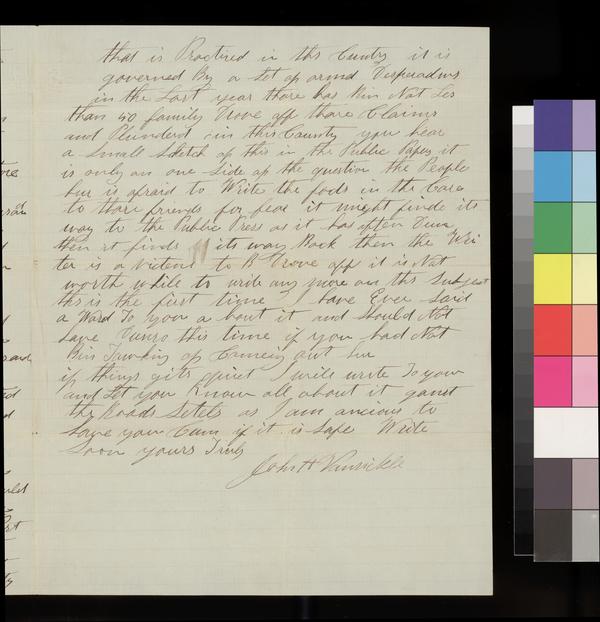 that is Practised in this Cuntry it is
governed By a Set of armd Desperadoes
in the Last year thare has Bin Not Les
than 40 family Drove off thare Claims
and Plunderd in this County you hear
a Small Sketch of this in the Public Papers it
is only on one Side of the question the People
her is afraid to Write the facts in the Case
to thare friends for fear it might finde its
way to the Public Press as it has often Dun
then it finds its way Back then the Wri
ter is a victem to B Drove off it is Not
worth while to write any more on this Subject
this is the first time I have Ever Said
a Word To you a bout it and Should Not
have Dun so this time if you had Not
Bin Thinking of Comeing out hur
if things gits quiet I will write To you
and Let you Know all about it
the Roads Setels as I am ancious to
have you Cum if it is Safe Write
Soon yours Truly
John H Vansickle